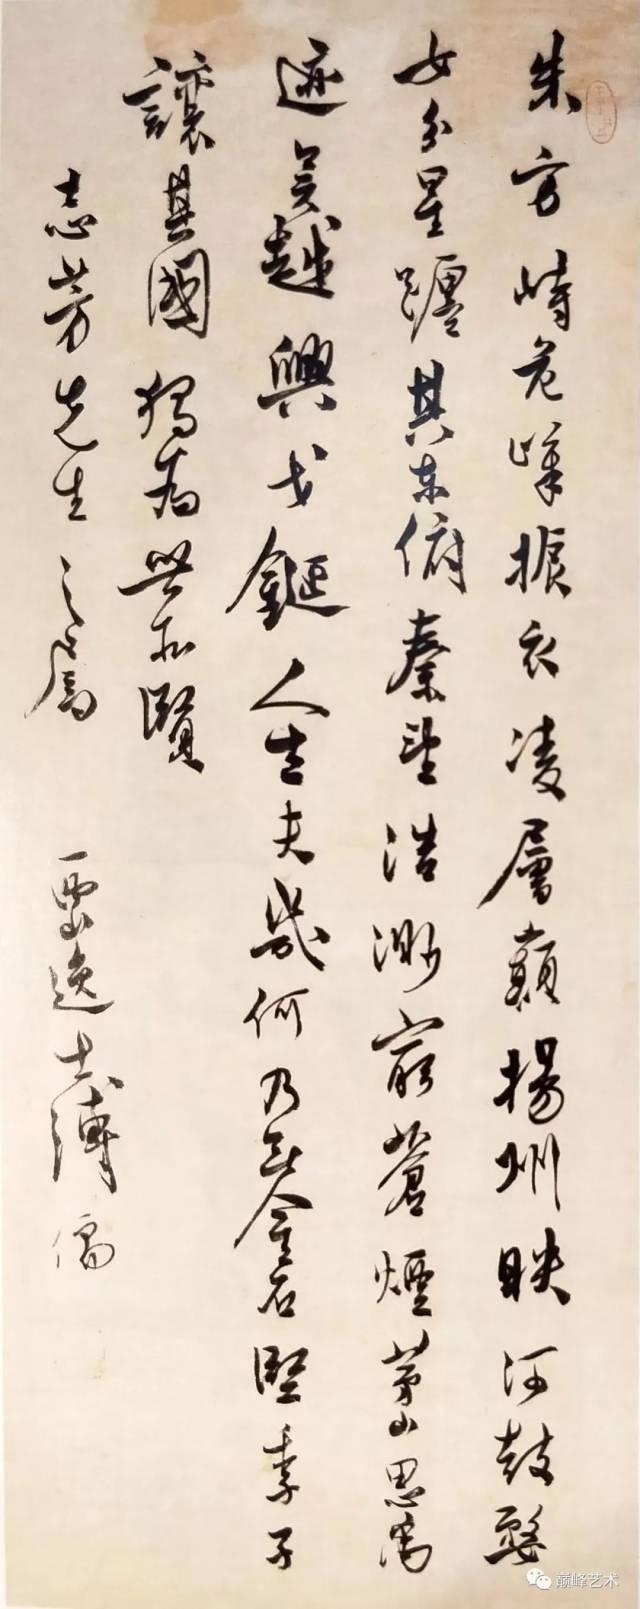 朱方峙危峰振衣凌層巔揚州映河鼓婺
女分星躔其東俯秦望浩渺窮蒼煙茅山思禹
迹吳越興戈鋋人生夫幾何乃無金石堅季子
讓其國獨為世所賢
志芳先生之屬
西山逸士溥儒
巅峰艺术